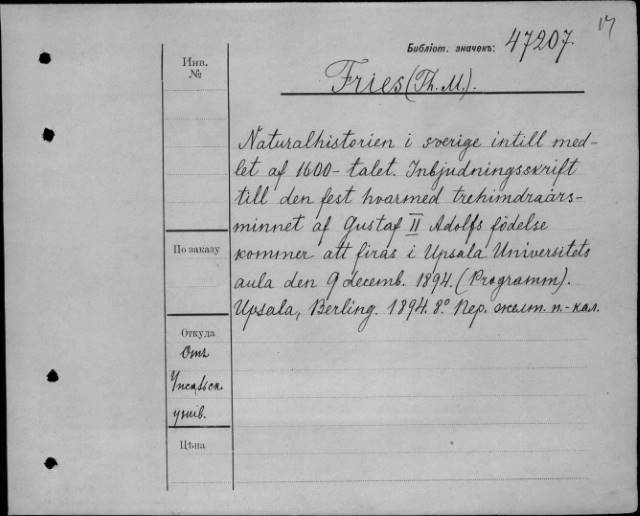 17
Библіот. значекъ: 47207.
Инв.
№
Fries (Th. M.).
Naturalhistorien i sverige intill med-
let af 1600-talet. Inbjudningsskrift
till den fest hvarmed trehimdraårs-
minnet af Gustaf II Adolfs födelse
kommer att firas i Upsala Universitets
По заказу
aula den 9 decemb. 1894. (Programm).
Upsala, Berling. 1894. 8º. Пер. желт. п.-кал.
Откуда
Отъ
унив.
Цѣна